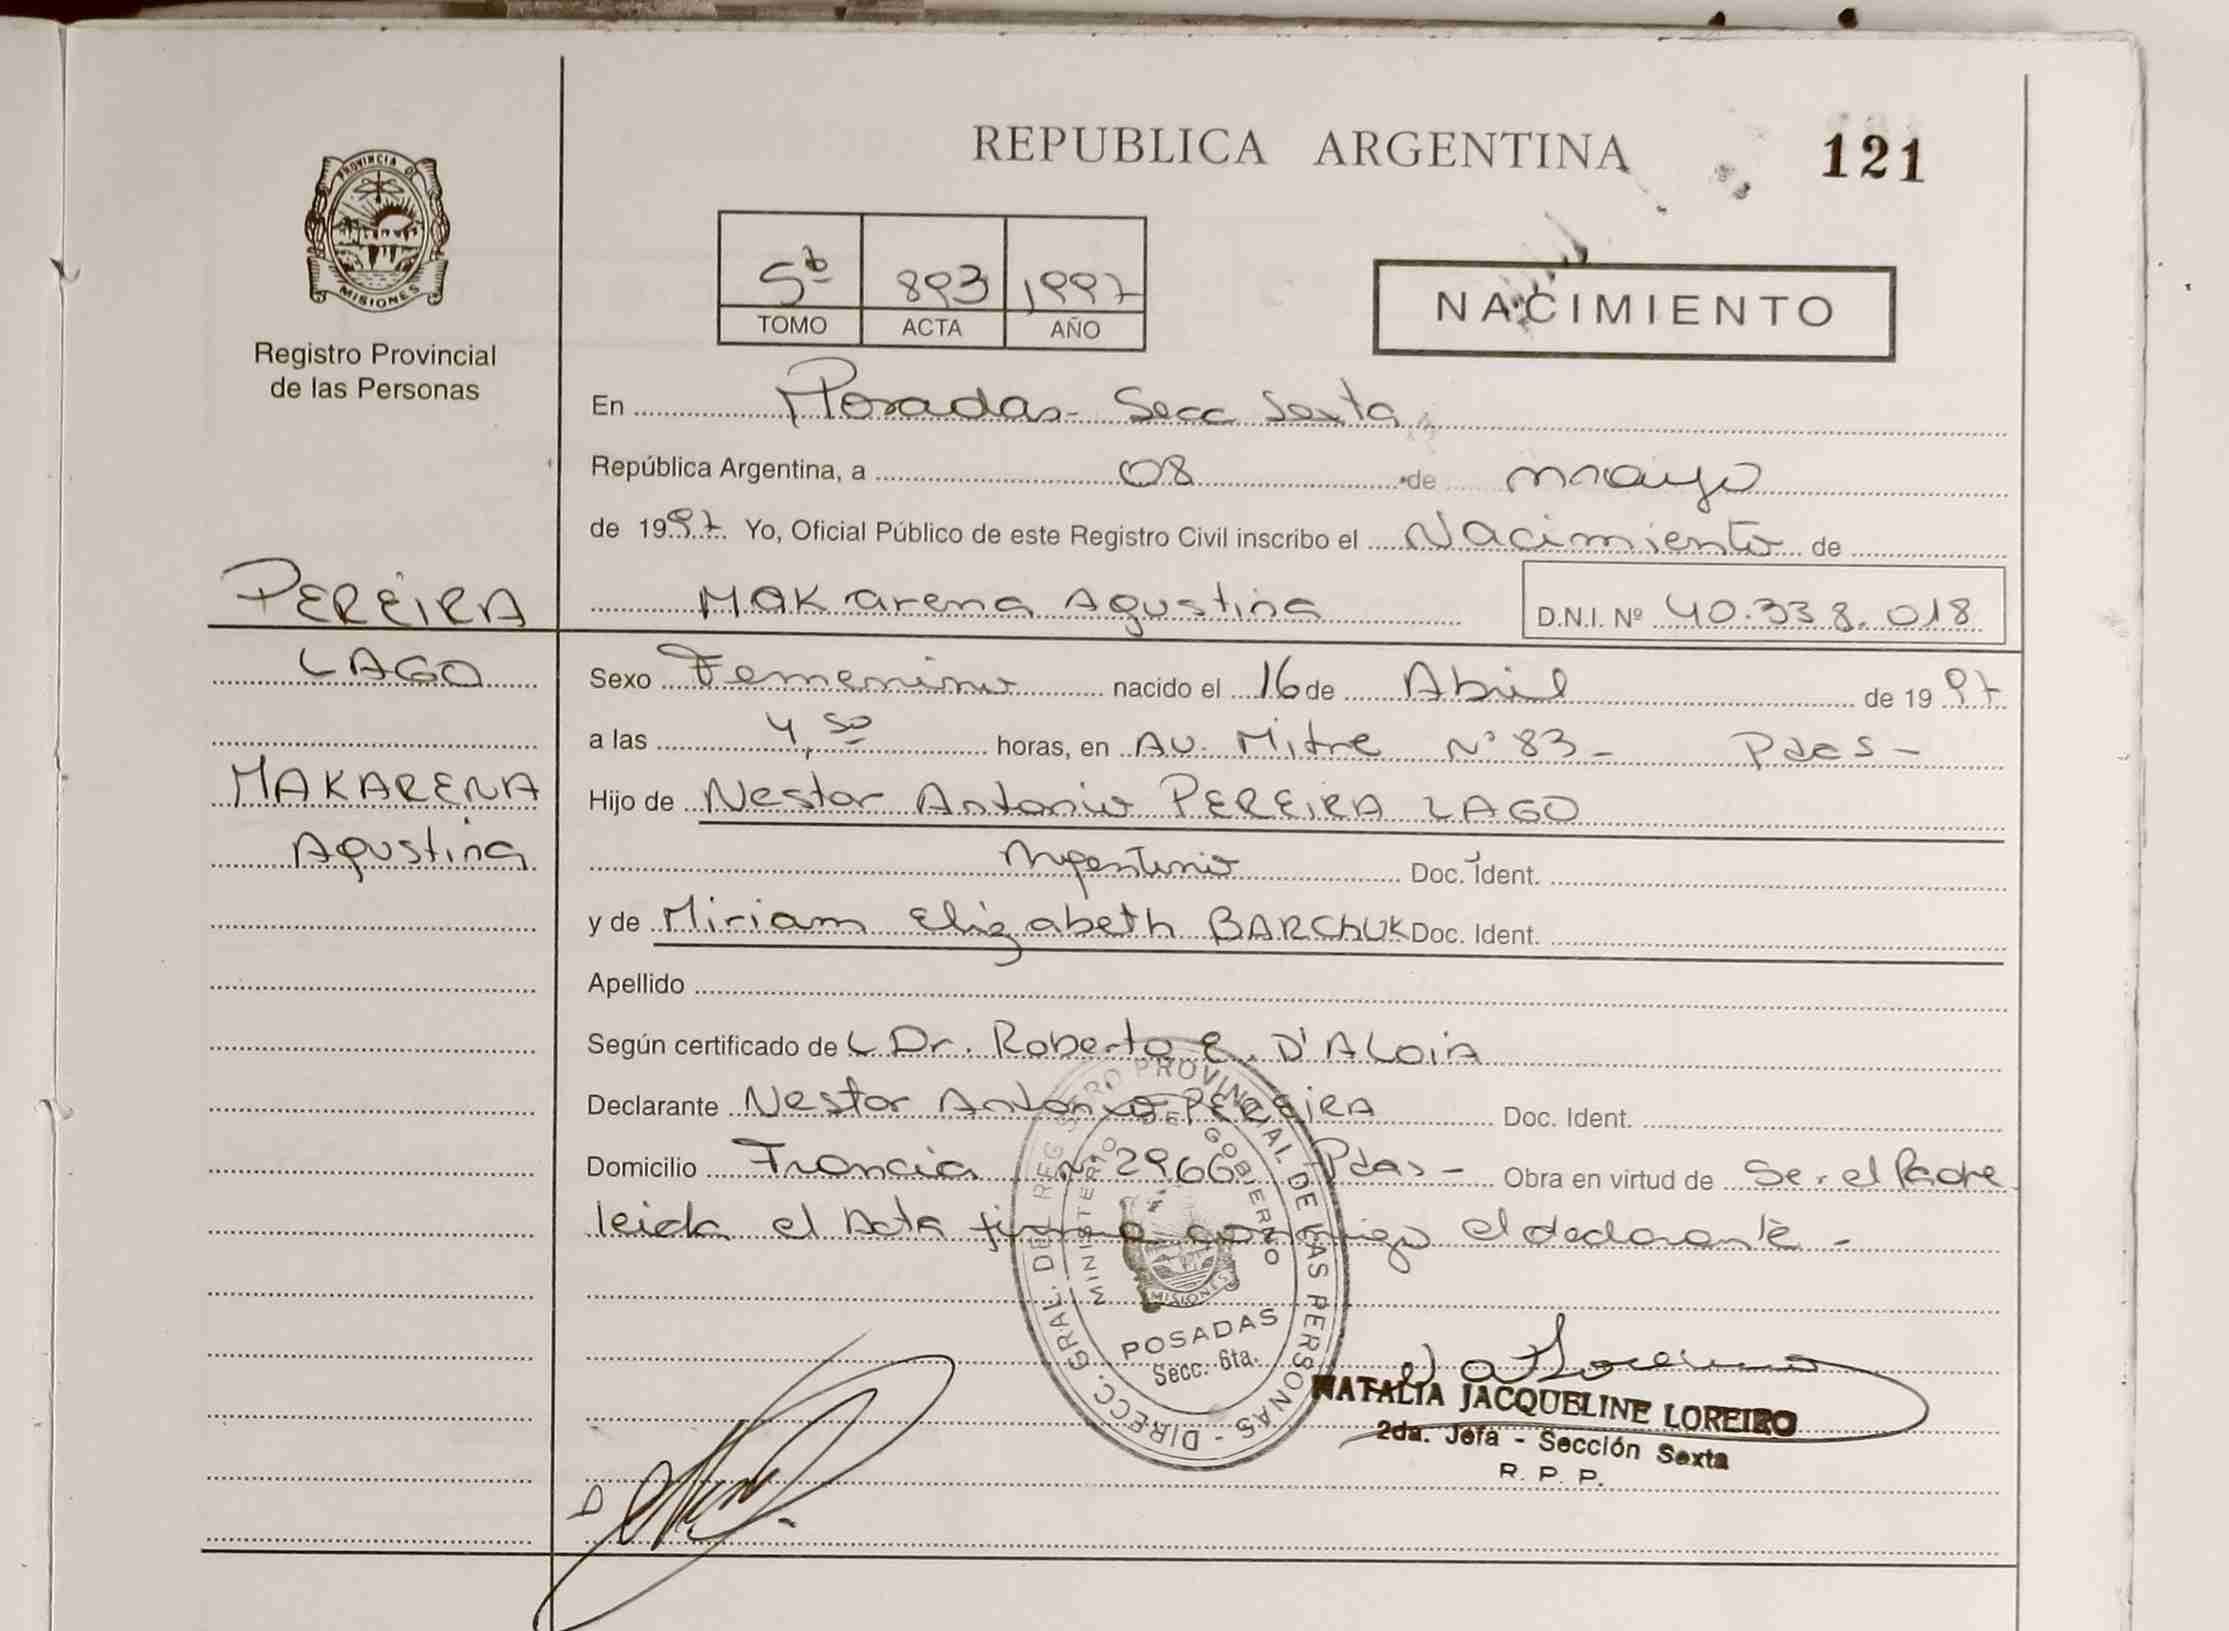 REPUBLICA ARGENTINA
121
PROVINCIA DE
MISIONES
Registro Provincial
de las Personas
5to 893 1997
TOMO ACTA AÑO
NACIMIENTO
En Posadas - Secc Sexta
República Argentina, a 08 de mayo
de 1997 Yo, Oficial Público de este Registro Civil inscribo el Nacimiento de
PEREIRA
MAKarena Agustina D.N.I. Nº 40.338.018
LAGO
Sexo Femenino nacido el 16 de Abril de 1997
a las 4,50 horas, en AV. Mitre Nº 83 - Pdas -
MAKARENA
Hijo de Nestor Antonio PEREIRA LAGO
Agustina
Argentino Doc. Ident.
y de Miriam Elizabeth BARChUK Doc. Ident.
Apellido
Según certificado de L Dr. Roberto E. D'ALOIA
Declarante Nestor Antonio PEREIRA Doc. Ident.
Domicilio Francia Nº 2966 Pdas - Obra en virtud de Ser el Padre
leida el Acta firma conmigo el declarante -
DIRECC. GRAL. DEL REGISTRO PROVINCIAL DE LAS PERSONAS -
MINISTERIO DE GOBIERNO
MISIONES
POSADAS
Secc. 6ta.
NATALIA JACQUELINE LOREIRO
2da. Jefa - Sección Sexta
R. P. P.